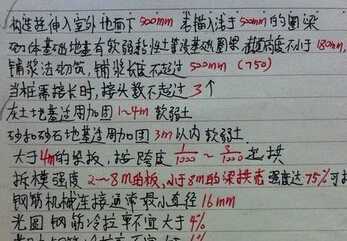 构造柱伸入室外地面下500mm 或锚入浅于500mm的圈梁
砌体基础地基有软弱黏性土等设基础圈梁 截面高度不小于180mm,
铺浆法砌筑,铺浆长度不超过500mm (750)
当桩需接长时,接头数不超过3个
灰土地基适用加固1~4m 软弱土
砂和砂石地基适用加固3m以内软弱土
大于4m的梁板,按跨度 1/1000 ~ 3/1000 起拱
拆模强度 2~8m的板,小于8m的梁拱壳 强度达75%可拆
钢筋机械连接通常最小直径16mm
光圆钢筋冷拉率不宜大于4%